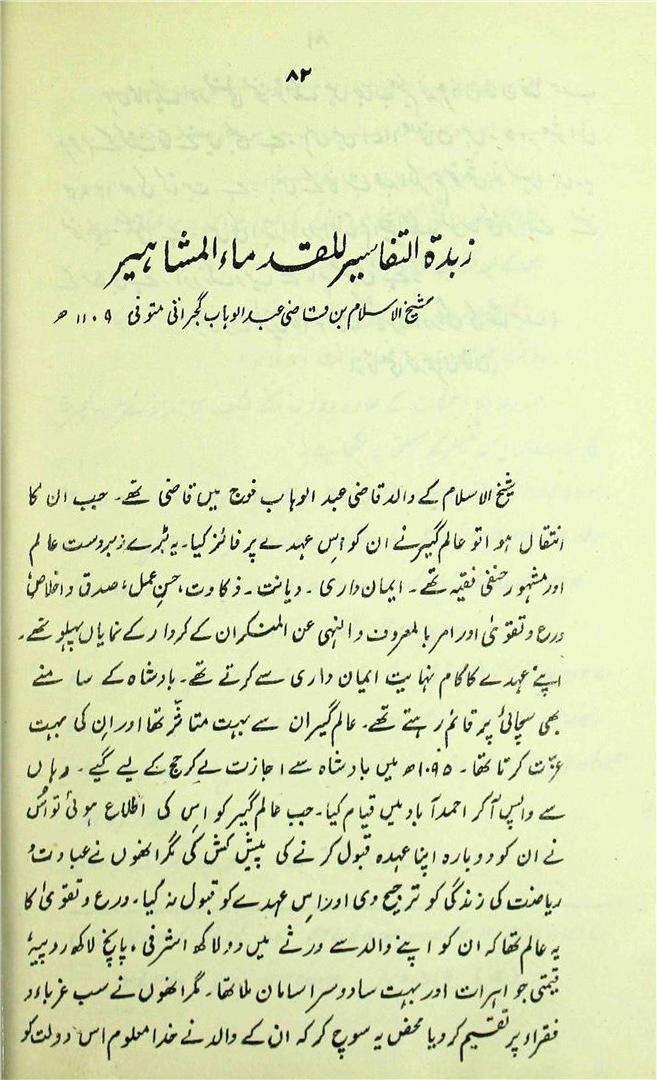 ۸۲
زبدۃ التفاسیر للقدماء المشاہیر
شیخ الاسلام بن قاضی عبدالوہاب گجراتی متوفی ۱۱۰۹ھ
شیخ الاسلام کے والد قاضی عبد الوہاب فوج میں قاضی تھے۔ جب ان کا
انتقال ہوا تو عالم گیر نے ان کو اس عہدے پر فائز کیا۔ یہ بڑے زبردست عالم
اور مشہور حنفی فقیہ تھے۔ ایمان داری ۔ دیانت ۔ ذکاوت، حسن عمل، صدق و اخلاص،
ورع و تقویٰ اور امر بالمعروف و النہی عن المنکر ان کے کردار کے نمایاں پہلو تھے۔
اپنے عہدے کا کام نہایت ایمان داری سے کرتے تھے۔ بادشاہ کے سامنے
بھی سچائی پر قائم رہتے تھے۔ عالم گیر ان سے بہت متاثر تھا اور ان کی بہت
عزت کرتا تھا۔ ۱۰۹۵ھ میں بادشاہ سے اجازت لے کر حج کے لیے گئے۔ وہاں
سے واپس آکر احمد آباد میں قیام کیا۔ جب عالم گیر کو اس کی اطلاع ہوئی تو اُس
نے ان کو دوبارہ اپنا عہدہ قبول کرنے کی پیش کش کی مگر انھوں نے عبادت و
ریاضت کی زندگی کو ترجیح دی اور اس عہدے کو قبول نہ کیا۔ ورع و تقویٰ کا
یہ عالم تھا کہ ان کو اپنے والد سے ورثے میں دو لاکھ اشرفی، پانچ لاکھ روپیہ
قیمتی جواہرات اور بہت سا دوسرا سامان ملا تھا۔ مگر انھوں نے سب غرباء و
فقراء پر تقسیم کر دیا محض یہ سوچ کر کہ ان کے والد نے خدا معلوم اس دولت کو